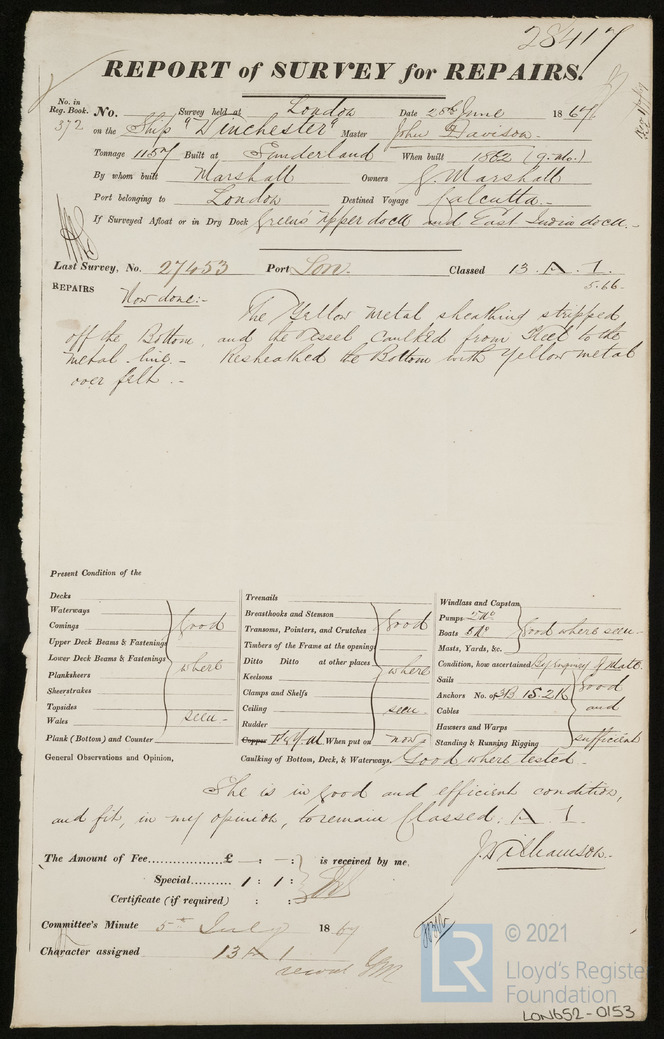 28417
REPORT of SURVEY for REPAIRS.
No. in Reg. Book. No. Survey held at London Date 28th June 1867
372 on the Ship "Winchester" Master John Davison
Tonnage 1157 Built at Sunderland When built 1862 (9. mo.)
By whom built Marshall Owners G. Marshall
Port belonging to London Destined Voyage Calcutta.-
If Surveyed Afloat or in Dry Dock Greens Upper dock and East India dock.-
Last Survey, No. 27453 Port Lon. Classed 13 A 1.
5.66.
REPAIRS Now done:-
The Yellow metal sheathing stripped
off the Bottom, and the Vessel Caulked from Keel to the
metal line.- Resheathed the Bottom with Yellow metal
over felt.-
Present Condition of the
Decks
Waterways
Comings
Upper Deck Beams & Fastenings
Lower Deck Beams & Fastenings
Planksheers
Sheerstrakes
Topsides
Wales
Good where seen -
Plank (Bottom) and Counter
Treenails
Breasthooks and Stemson
Transoms, Pointers, and Crutches
Timbers of the Frame at the openings
Ditto Ditto at other places
Keelsons
Clamps and Shelfs
Ceiling
Rudder
Good where seen -
Copper When put on now
Windlass and Capstan
Pumps
Boats
Masts, Yards, &c.
Good where seen -
Condition, how ascertained
Sails
Anchors No. of 3B 1S. 2K
Cables
Hawsers and Warps
Standing & Running Rigging
Good and sufficient
General Observations and Opinion, Caulking of Bottom, Deck, & Waterways, Good where tested -
She is in good and efficient condition,
and fit, in my opinion, to remain Classed. A 1.
J. Williamson.
The Amount of Fee............... £ - : - : is received by me,
Special.......... 1 : 1 :
Certificate (if required) : :
Committee's Minute 5th July 1867
Character assigned 13 A 1
© 2021
LR
Lloyd's Register
Foundation
LON652-0153